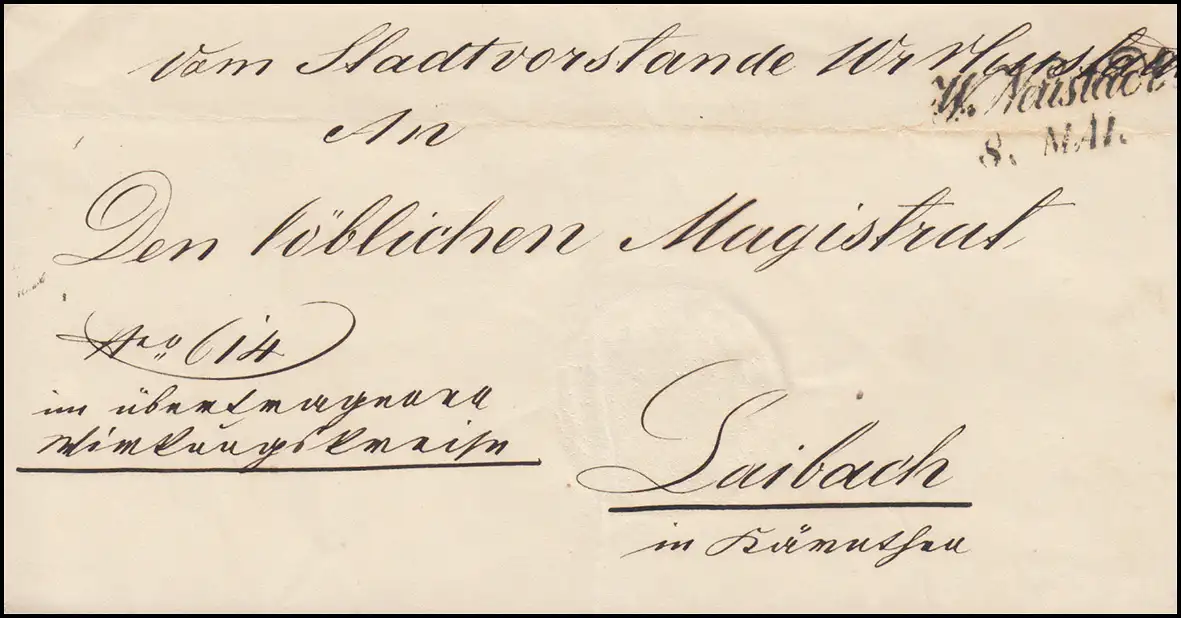 Vom Stadtvorstande Wr Neustadt
W. Neustadt
8. MAI.
An
Den löblichen Magistrat
Nro 614
im übertragenen
Wirkungskreise
Laibach
in Kärnthen